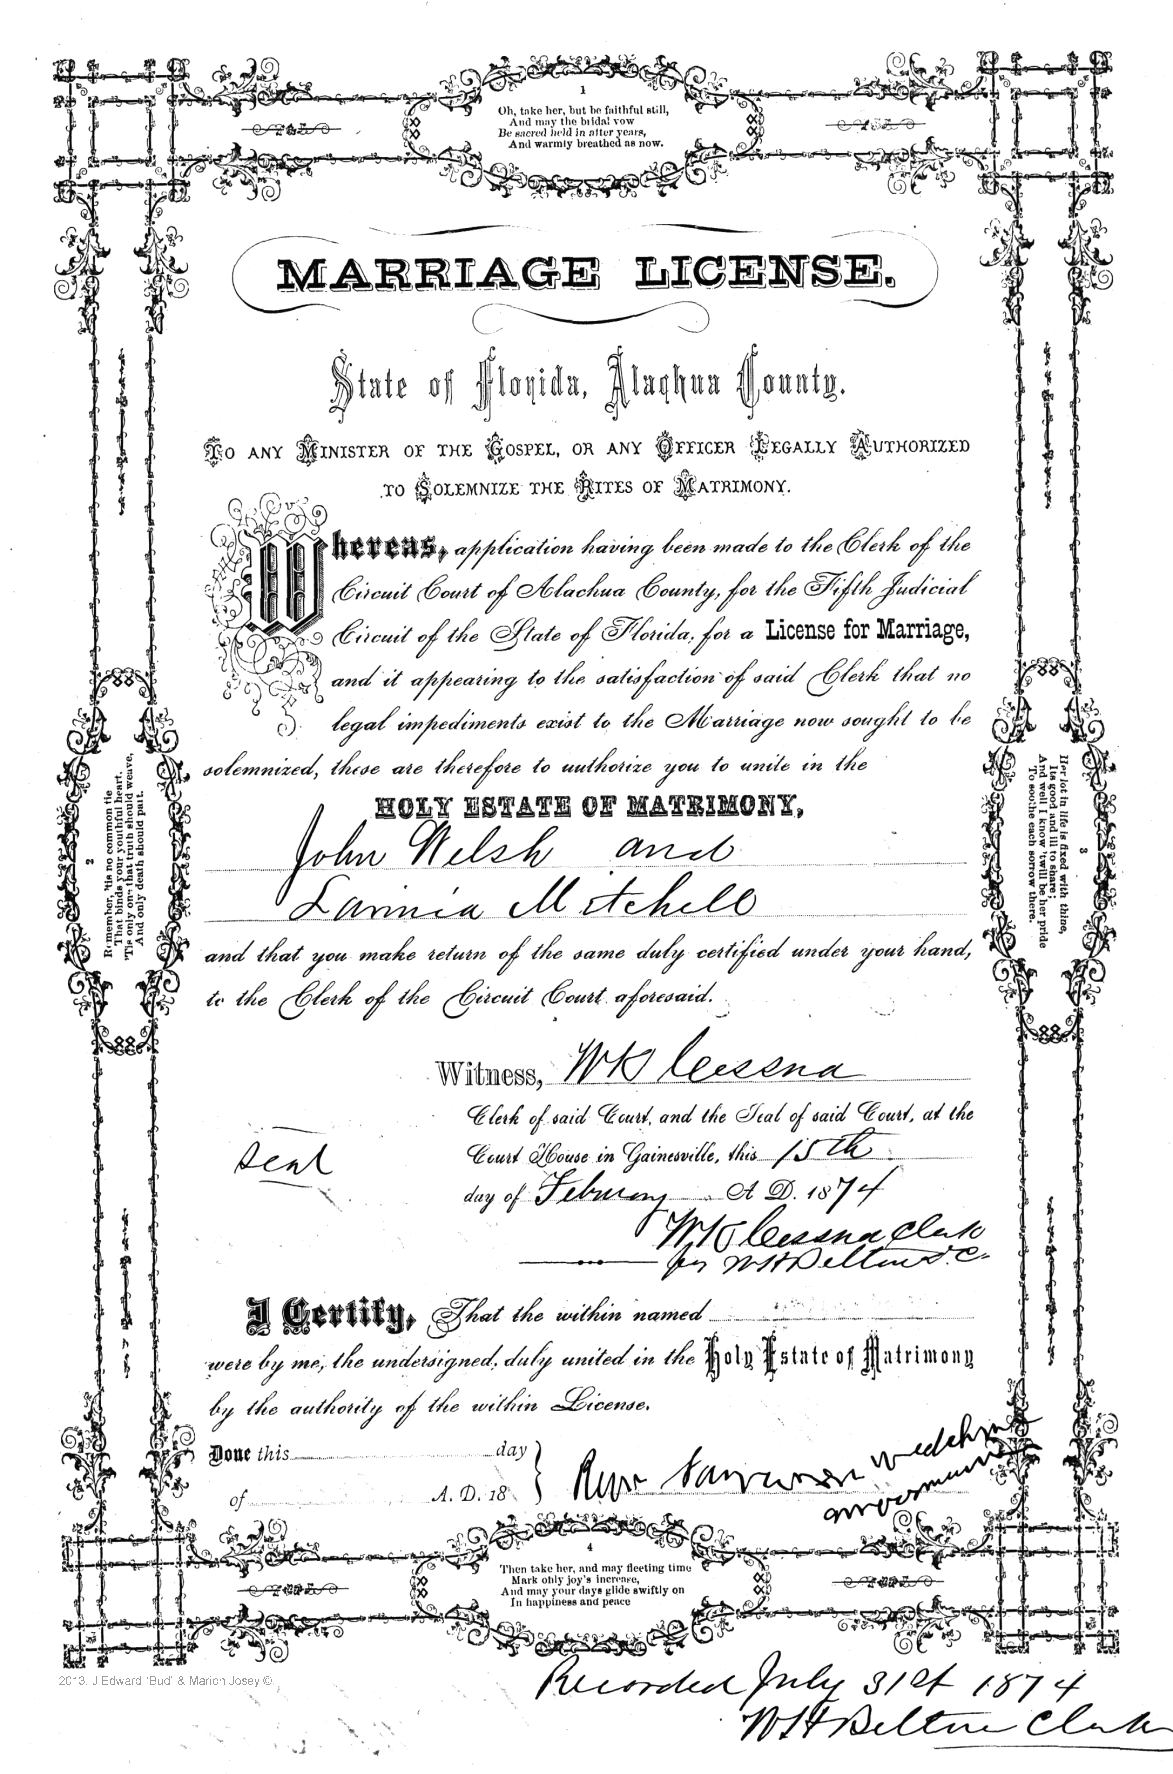 1
Oh, take her, but be faithful still,
And may the bridal vow
Be sacred held in after years,
And warmly breathed as now.
MARRIAGE LICENSE.
State of Florida, Alachua County.
TO ANY MINISTER OF THE GOSPEL, OR ANY OFFICER LEGALLY AUTHORIZED
TO SOLEMNIZE THE RITES OF MATRIMONY.
Whereas, application having been made to the Clerk of the
Circuit Court of Alachua County, for the Fifth Judicial
Circuit of the State of Florida, for a License for Marriage,
and it appearing to the satisfaction of said Clerk that no
legal impediments exist to the Marriage now sought to be
solemnized, these are therefore to authorize you to unite in the
HOLY ESTATE OF MATRIMONY,
John Welsh and
Lannia Mitchell
and that you make return of the same duly certified under your hand,
to the Clerk of the Circuit Court aforesaid.
Witness, WK Cessna
Clerk of said Court, and the Seal of said Court, at the
Court House in Gainesville, this 15th
Seal
day of February A. D. 1874
WK Cessna Clerk
per WH Belton D.C.
I Certify, That the within named
were by me, the undersigned, duly united in the Holy Estate of Matrimony
by the authority of the within License.
Done this day
of A. D. 18
2
Remember, 'tis no common tie
That binds your youthful heart.
'Tis only one that truth should weave,
And only death should part.
3
Her lot in life is fixed with thine,
Its good and ill to share;
And well I know 'twill be her pride
To soothe each sorrow there.
4
Then take her, and may fleeting time
Mark only joy's increase,
And may your days glide swiftly on
In happiness and peace
2013. J Edward 'Bud' & Marion Josey ©
Recorded July 31st 1874
WH Belton Clerk